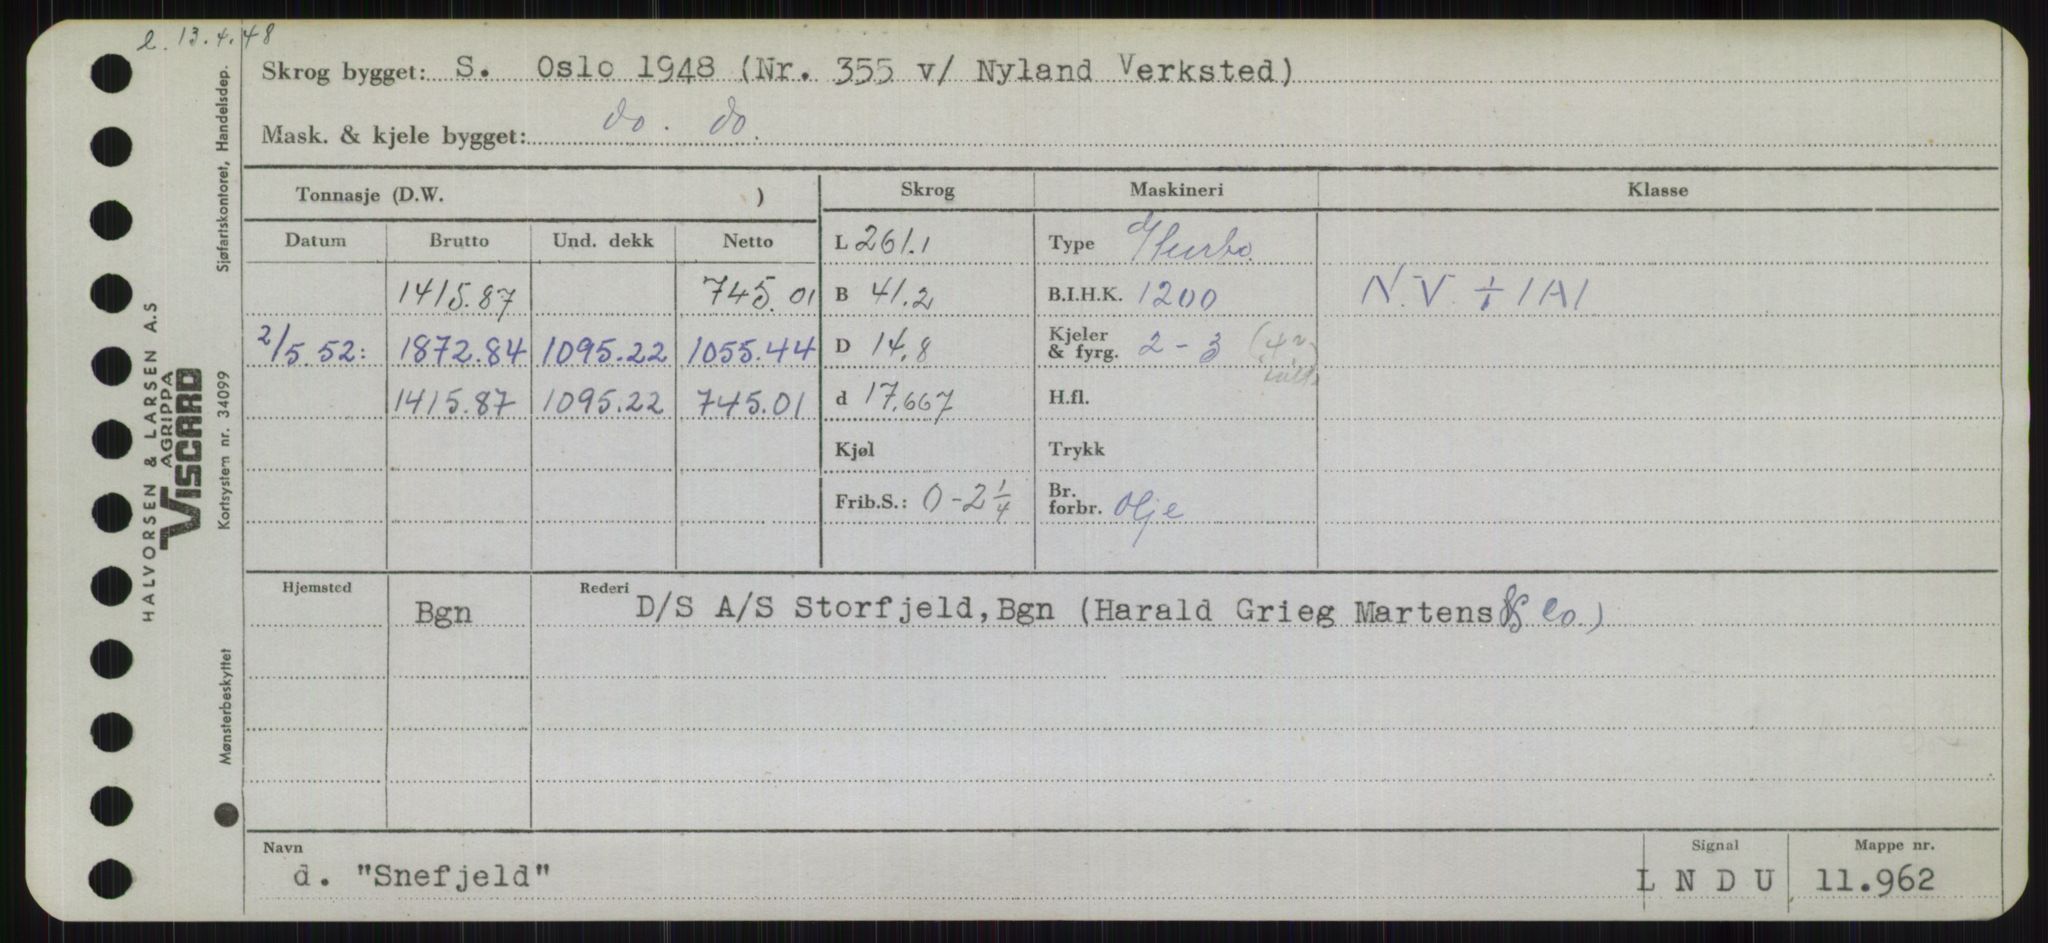 l. 13.4.48
Skrog bygget: S. Oslo 1948 (Nr. 355 v/ Nyland Verksted)
Mask. & kjele bygget: do. do.
Tonnasje (D.W. ) Skrog Maskineri Klasse
Datum Brutto Und. dekk Netto L 261.1 Type
1415.87 745.01 B 41.2 B.I.H.K. 1200 N.V. + 1A1
2/5.52: 1872.84 1095.22 1055.44 D 14.8 Kjeler & fyrg. 2-3
1415.87 1095.22 745.01 d 17.667 H.fl.
Kjøl Trykk
Frib.S.: 0-2 1/4 Br. forbr. Olje
Hjemsted Rederi
Bgn D/S A/S Storfjeld, Bgn (Harald Grieg Martens & Co.)
Navn Signal Mappe nr.
d. "Snefjeld" L N D U 11.962
HALVORSEN & LARSEN A.S
AGRIPPA
VISCARD
Mønsterbeskyttet Kortsystem nr. 34099 Sjøfartskontoret, Handelsdep.